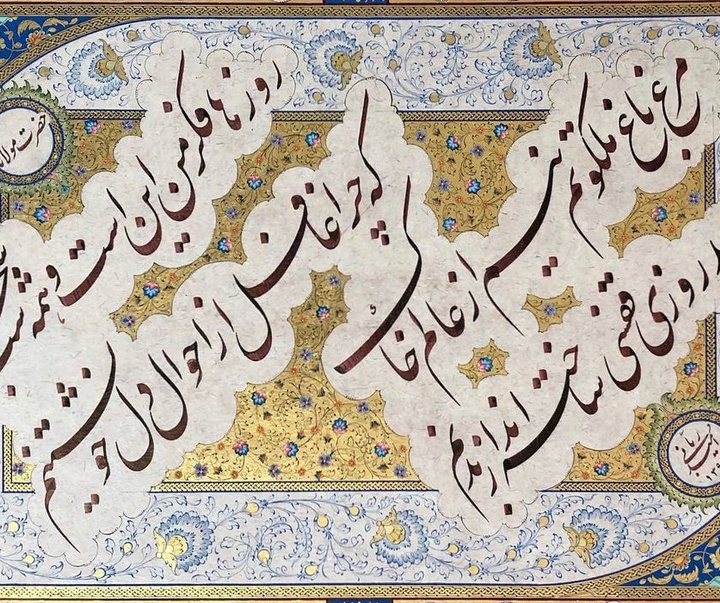 مرغ باغ ملکوتم نیم از عالم خاک
ند روزی قفسی ساخته اند از بدنم
روزها فکر من این است و همه شب سخ
که چرا غافل از احوال دل خویشتنم
حضرت مولا